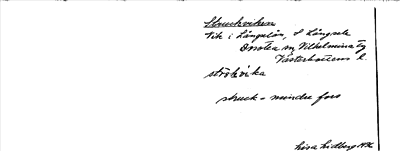 Struckviken
Vik i Långselån, S Långsele
Dorotea sn, Vilhelmina tg
Västerbottens l.
struck = mindre fors
Lisa Lidberg